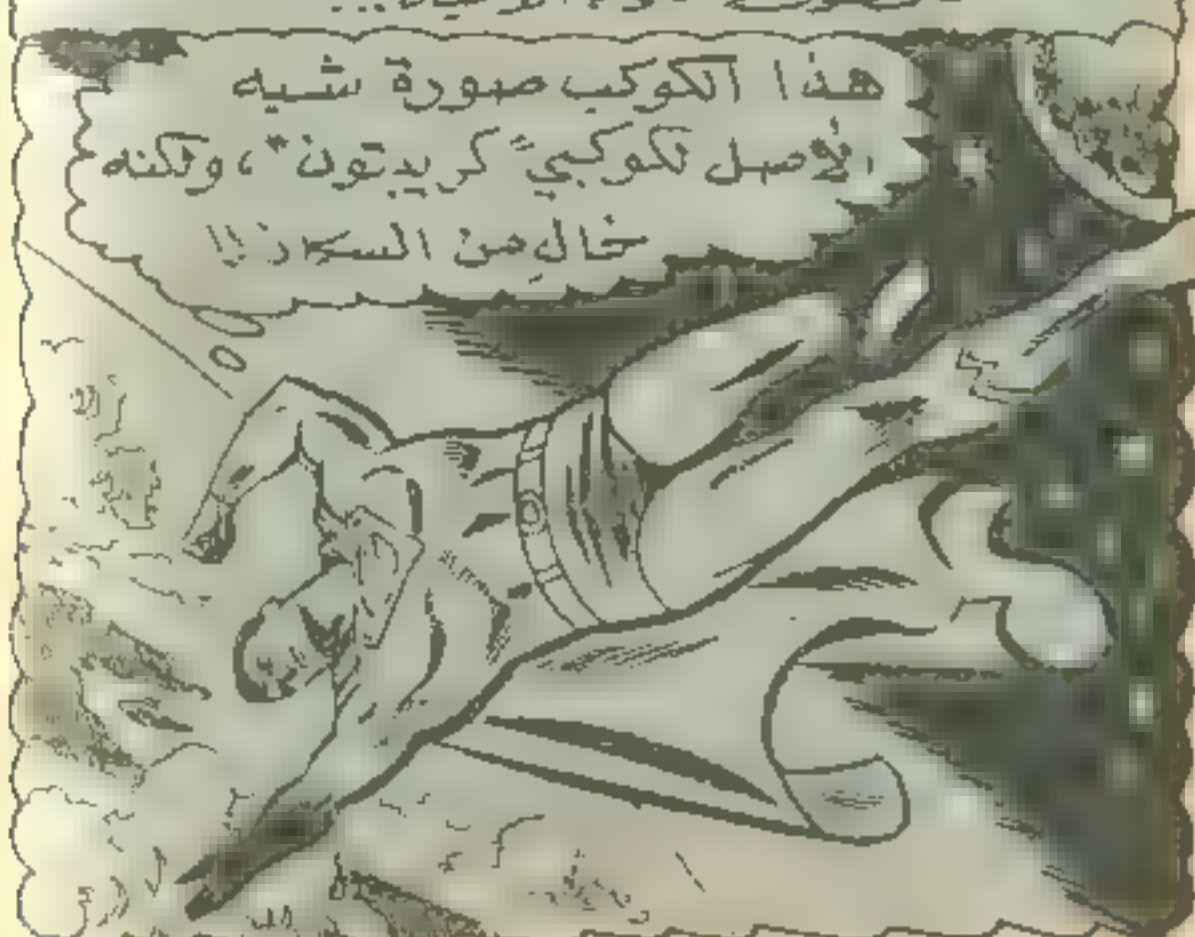 هذا الكوكب صورة شبه
الأصل لكوكبي "كريبتون"، ولكنه
خالٍ من السكان!!